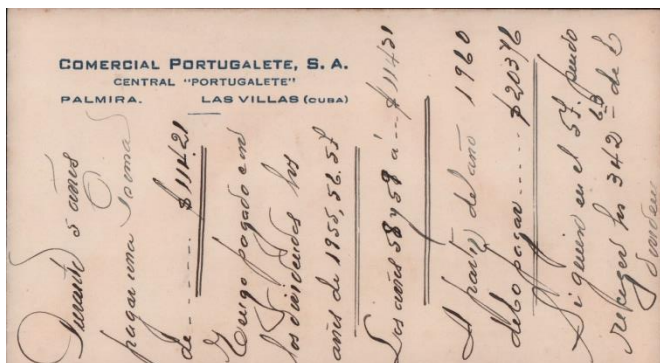 COMERCIAL PORTUGALETE, S. A.
CENTRAL "PORTUGALETE"
PALMIRA. LAS VILLAS (CUBA)
Durante 5 años
pagar una prima
de ------ $ 114.21
Tengo pagado con
los dividendos los
años de 1955, 56. 57
Los años 58 y 59 a ... $ 114.21
A partir del año 1960
debo pagar ..... $ 203.76
Si quiero en el 57. puedo
recoger los 342 63 de